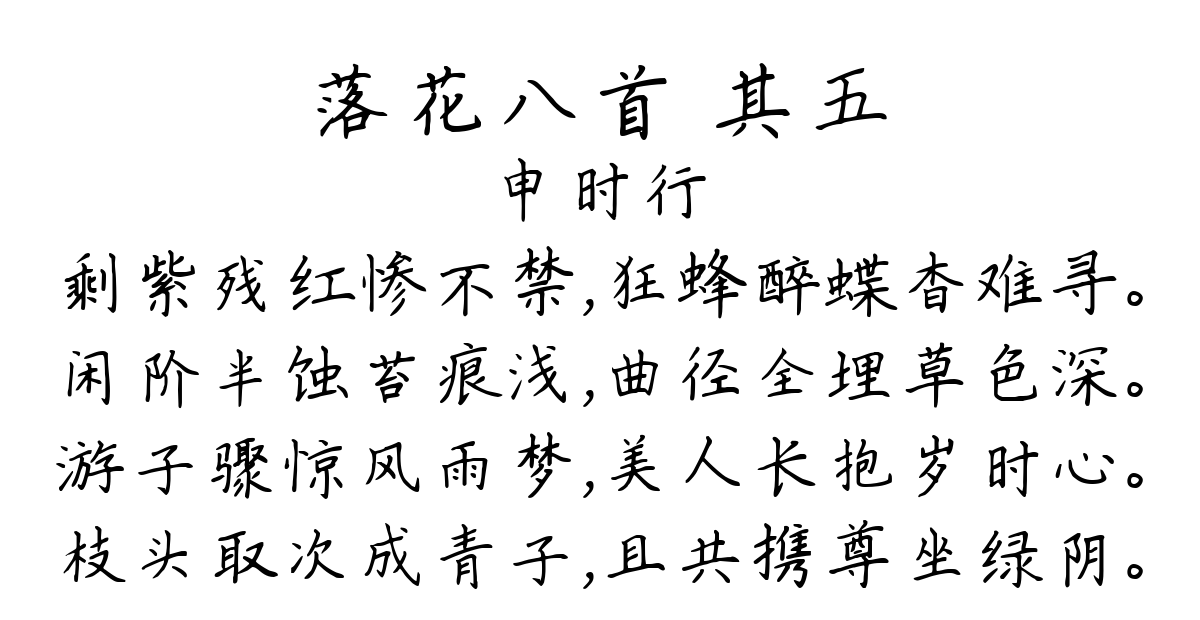 落花八首 其五
申时行
剩紫残红惨不禁,狂蜂醉蝶杳难寻。
闲阶半蚀苔痕浅,曲径全埋草色深。
游子骤惊风雨梦,美人长抱岁时心。
枝头取次成青子,且共携尊坐绿阴。